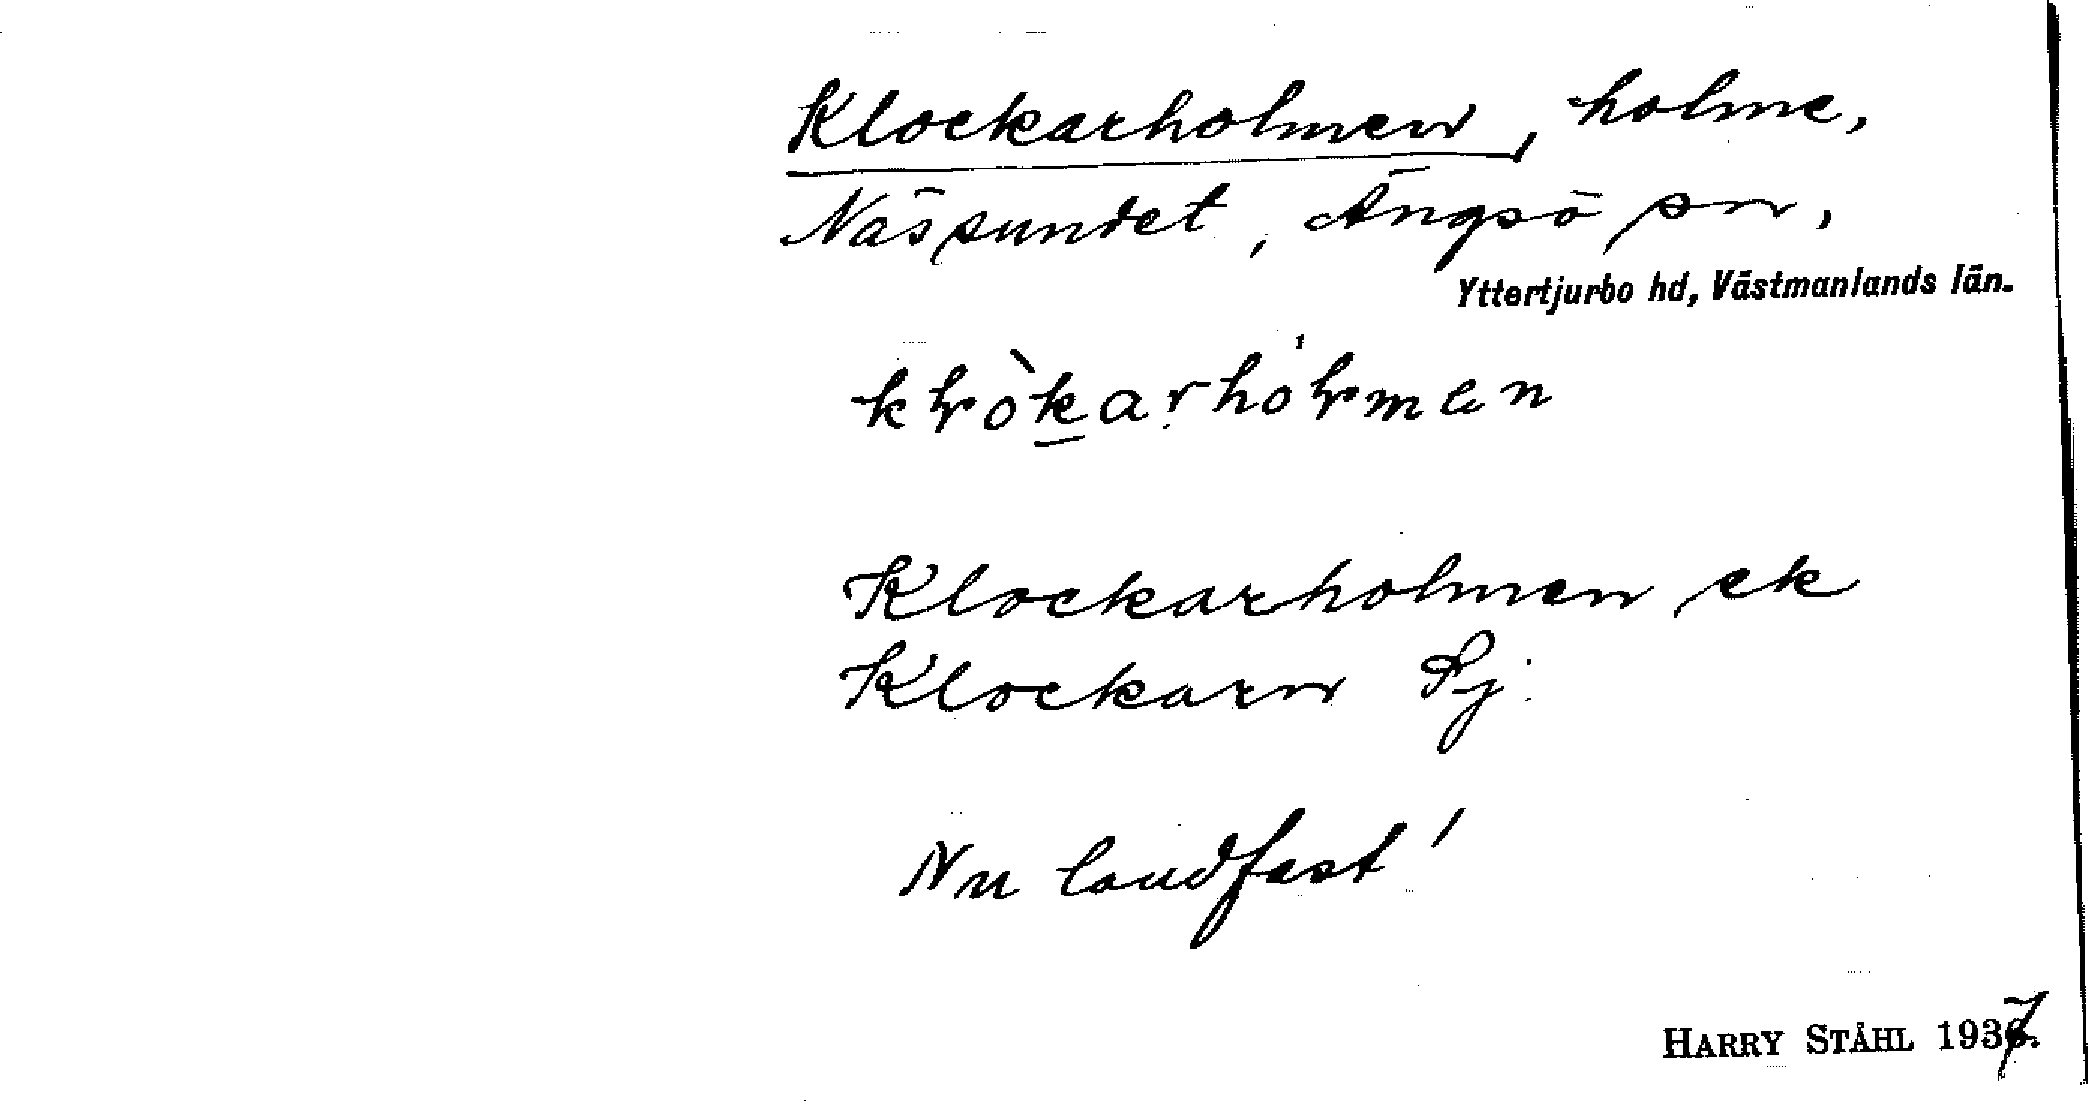 Klockarholmen, holme,
Nässundet, Ängsö sn,
Yttertjurbo hd, Västmanlands län.
Klockarholmen ek
Klockarn
Nu landfast!
HARRY STÅHL 1937.